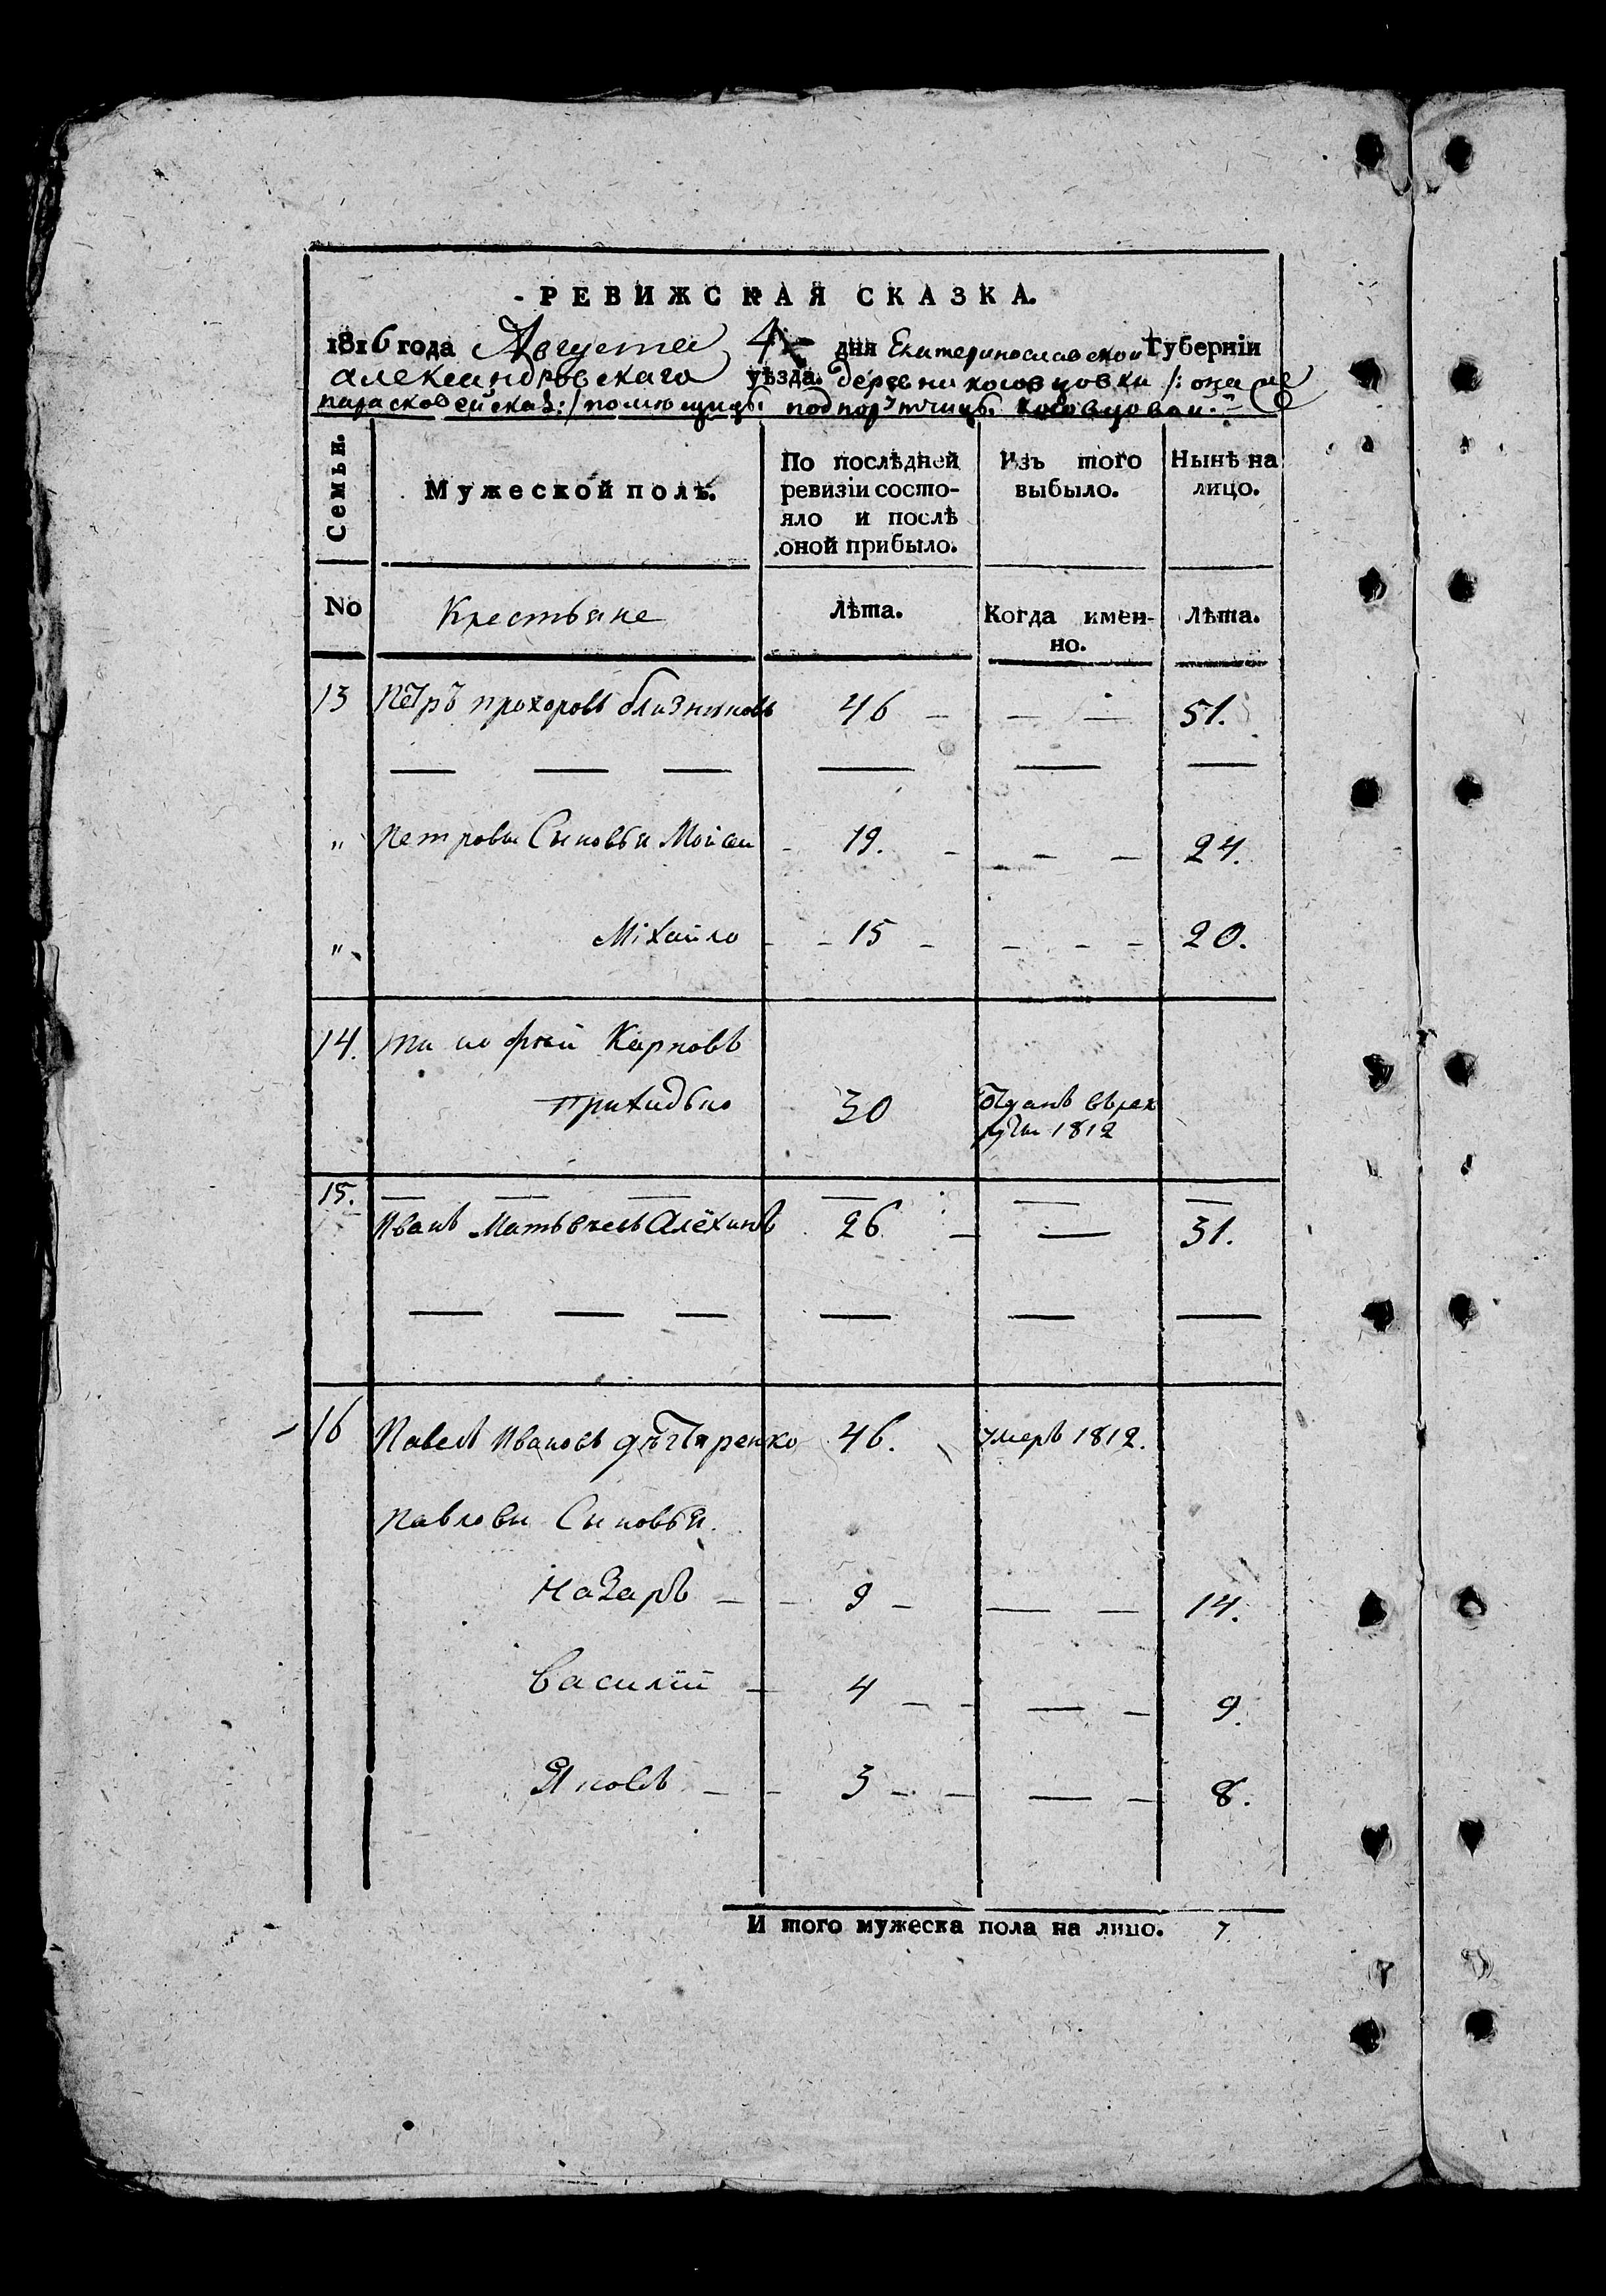 РЕВИЖСКАЯ СКАЗКА.
1816 года Августа 4 дня Екатеринославской Губерніи
александровскаго уѣзда. деревни косовцовки /: она же
парасковейска :/ помѣщицы подпорутчицы косовцовой.
Семьи.
Мужеской полъ.
По послѣдней ревизіи состояло и послѣ оной прибыло.
Изъ того выбыло.
Нынѣ на лицо.
No Крестьяне Лѣта. Когда именно. Лѣта.
13 Петръ прохоровъ близнюковъ 46 — — — 51.
— — — — — —
" Петровы Сыновья Мойсей - 19. - - - 24.
" Міхайло - - 15 - - - - 20.
14. Тимофей Карповъ
приходько 30 Отданъ въ рек
руты 1812
15. — — — — — —
Иванъ Матвѣевъ Алёхинъ 26 — — 31.
— — — — — —
16 Павелъ Ивановъ дѣгтяренко 46. умеръ 1812.
Павловы Сыновья.
Назаръ — - 9 - — — 14.
Василій — 4 — - — - 9.
Яковъ — - 3 - - — - 8.
И того мужеска пола на лицо. 7